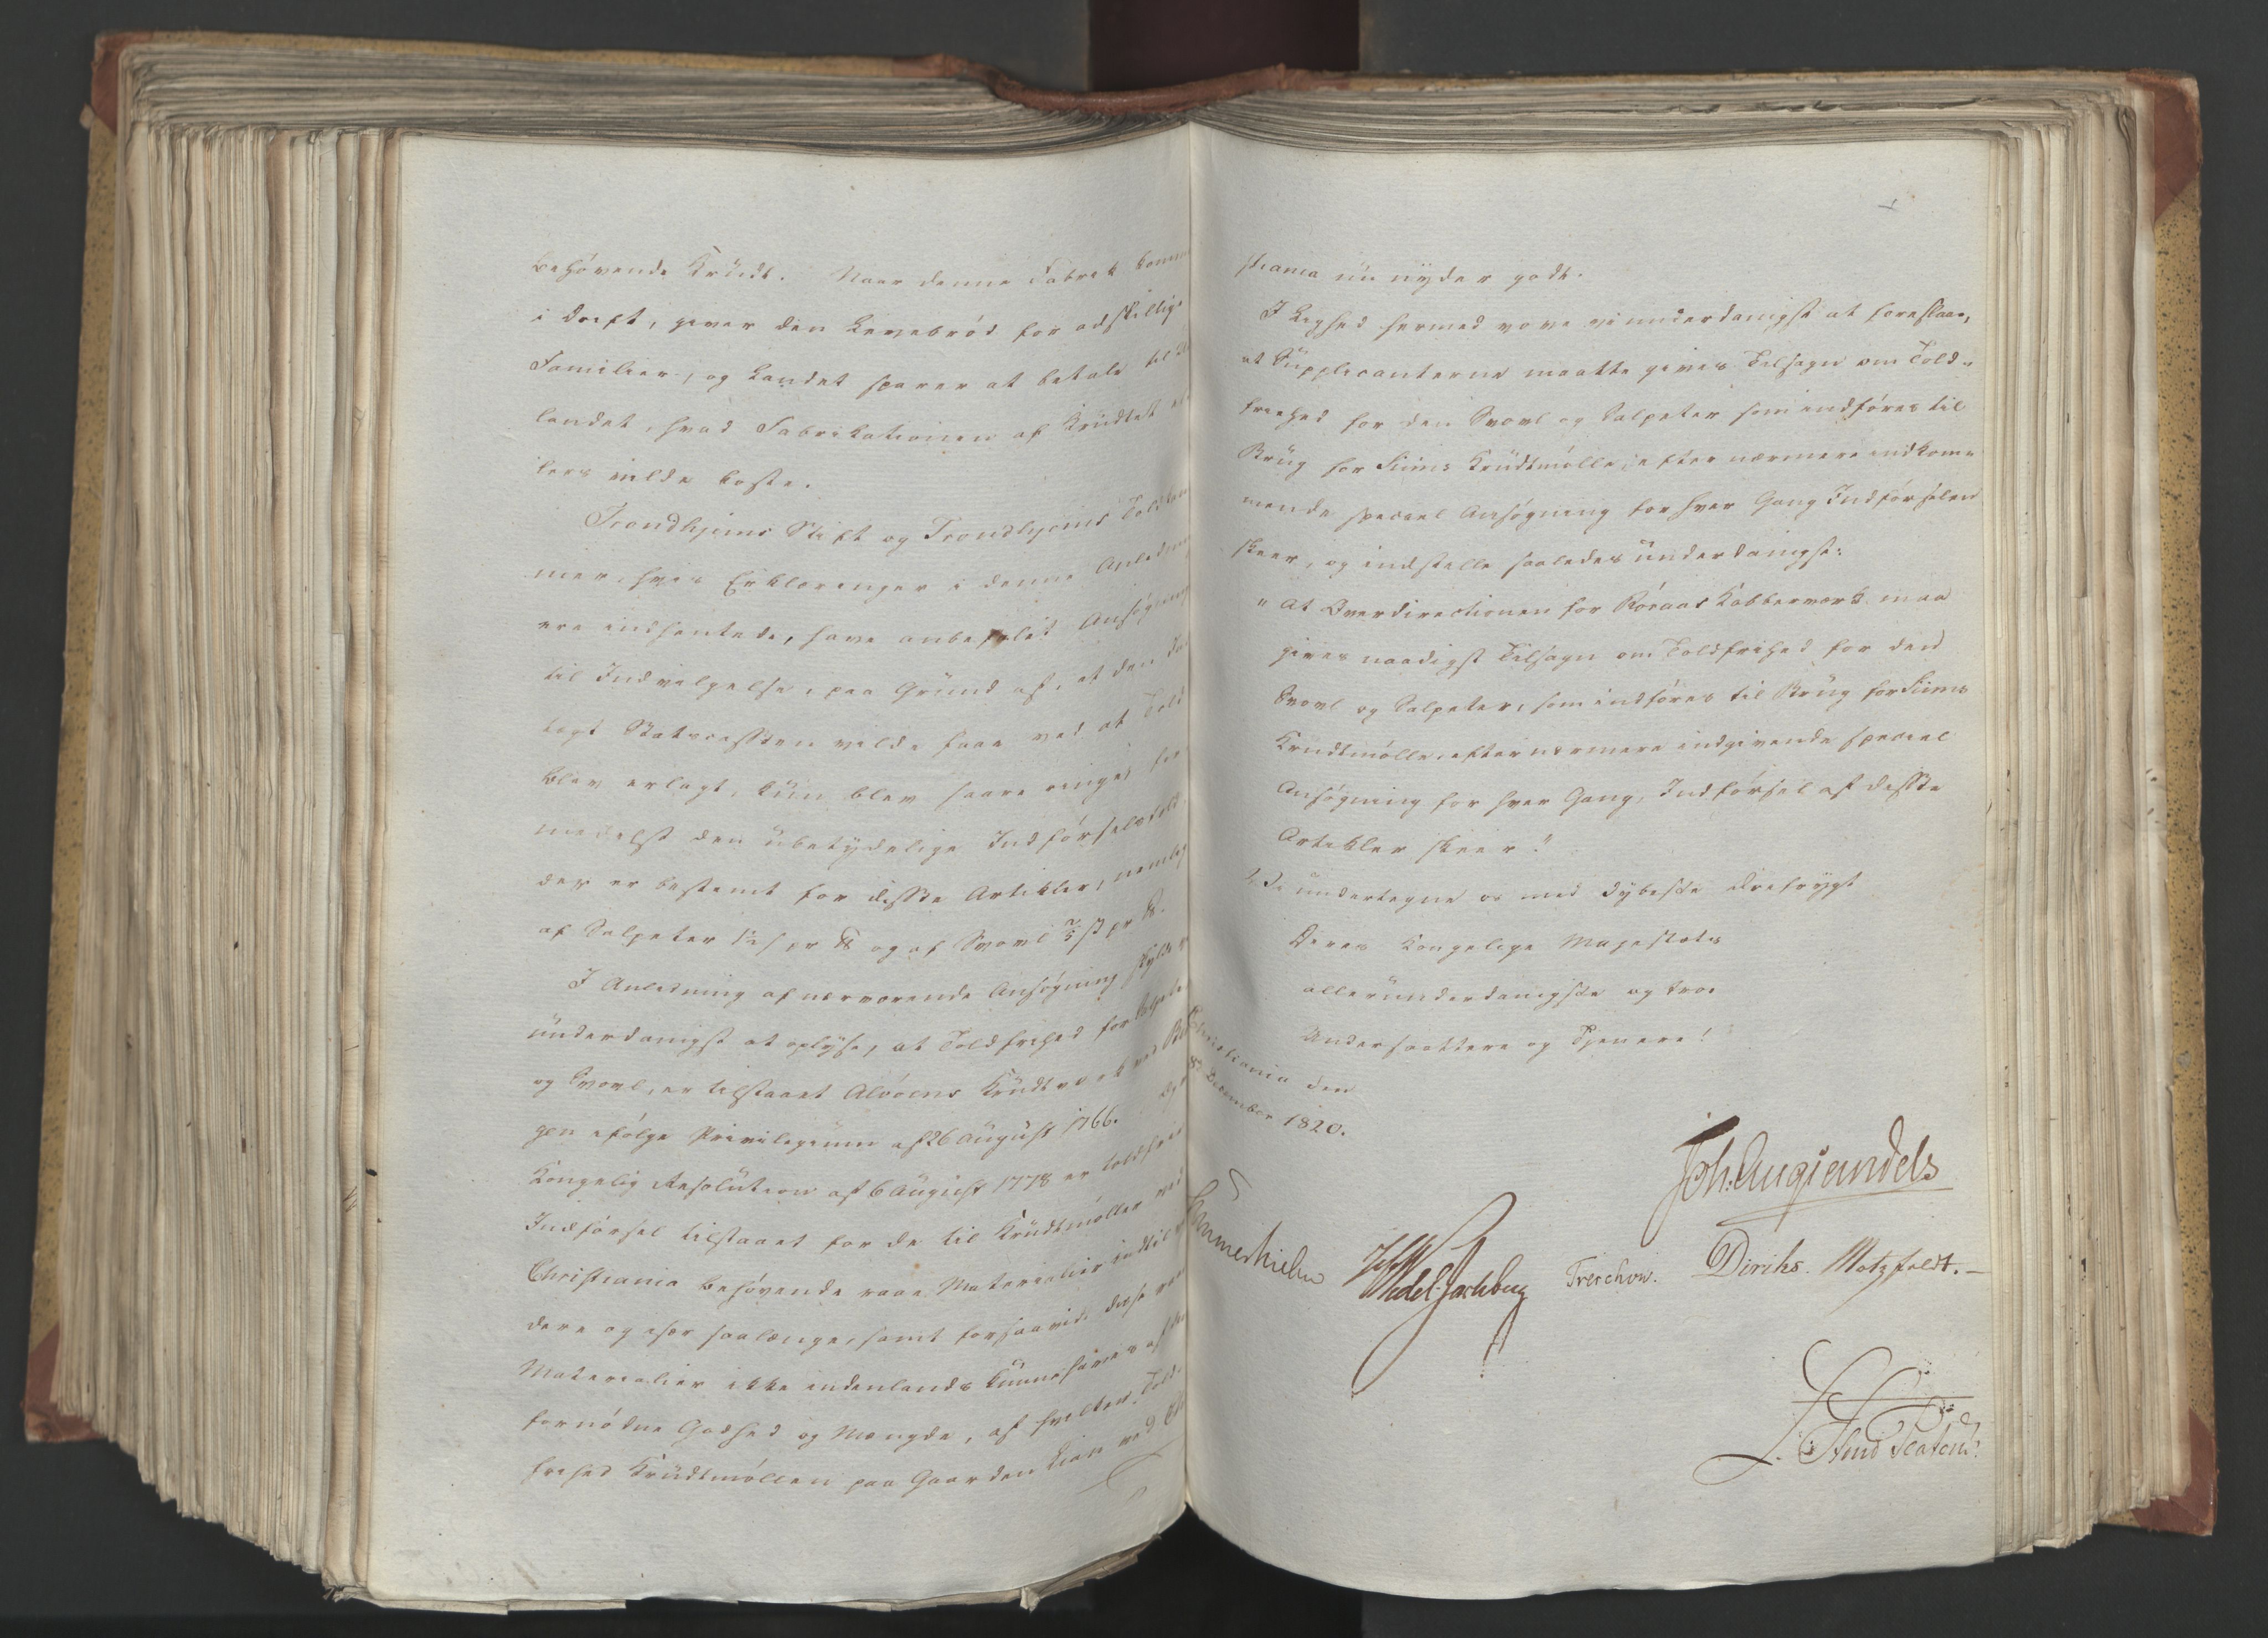 behøvende Krüdt. Naar denne Fabrek komm
i Drift, giver den Levebrød for adskillige
Familier, og Landet sparer at betale til
landet, hvad Fabrikationen af Krüdtet
lers vilde koste.
Trondhjems Stift og Trondhjems Told
mer, hvis Erklæringer i denne Anledn
ere indhentede, have anbefalet Ansøgning
til Indvilgelse, paa Grund af, at den
tægt Statscassen vilde faae ved at Told
blev erlagt, kün blev saare ringe, for
medelst den übetÿdelige Indførselstold
der er bestemt for disse Artikler, nemlig
af Salpeter 1½ s pr ℔ og af Svovl ⅔ ß pr ℔.
I Anledning af nærværende Ansøgning skylde
ünderdanigst at oplÿse, at Toldfrihed for Salpeter
og Svovl, er tilstaaet Alvøens Krüdtværk ved
gen ifølge Privilegium af 26 Aügüst 1766.
Kongelig Resolütion af 6 Aügüst 1778 er toldfrie
Indførsel tilstaaet for de til Krüdtmøller ved
Christiania behøvende raae Materialier indtil
dere og ifær saalænge, samt forsaavidt disse raae
Materialier ikke indenlands künne haves af den
fornødne Godhed og Mængde, af hvilken Told-
frihed Krüdtmøllen paa Gaarden Lian ved
stiania nü nÿder godt.
I Lighed hermed vove vi underdanigst at foreslaae,
at Süpplicanterne maatte gives Tilsagn om Told-
friehed for den Svovl og Salpeter som indføres til
Brüg for Siims Krüdtmølle, efter nærmere indkom-
mende speciel Ansøgning for hver Gang Indførselen
skeer, og indstille saaledes ünderdanigst:
"At Overdirectionen for Røraas Kobberværk maa
gives naadigst Tilsagn om Toldfrihed for den
Svovl og Salpeter, som indføres til Brüg for Siims
Krudtmølle, efter nærmere indgivende speciel
Ansøgning for hver Gang, Indførsel af disse
Artikler skeer."
Vi ündertegne os med dÿbeste Ærefrygt
Deres Kongelige Majestæts
alleründerdanigste og troe
Undersaattere og Tjenere!
Christiania den
8 December 1820.
Joh. Aug Sandels
Sommerhielm
Wedel Jarlsberg
Treschow.
Diriks.
Motzfeldt.